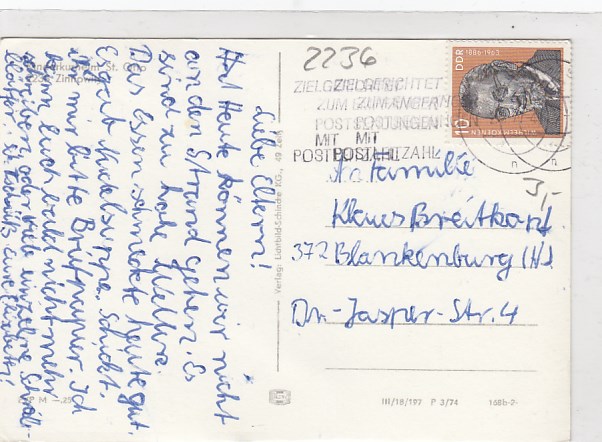 Kinderkurheim St. Otto
2238 Zinnowitz
Liebe Eltern!
Heute können wir nicht
an den Strand gehen. Es
sind zu hohe Wellen.
Das Essen schmeckte heute gut.
Es gab Nudelsuppe. Schickt
mir bitte Briefpapier. Ich
kann euch bald nicht mehr
schreiben oder viele einzelne
Eure Elisabeth
Verlag: Lichtbild-Schincke KG., 49 Zeitz
2236
ZIELGERICHTET
ZUM EMPFÄNGER
POSTSENDUNGEN
MIT
POSTLEITZAHL
DDR
1886-1963
10
WILHELM KOENEN
3,-
An Familie
Klaus Breitkopf
372 Blankenburg (H.)
Dr.-Jasper-Str. 4
III/18/197 P 3/74 168b-2-